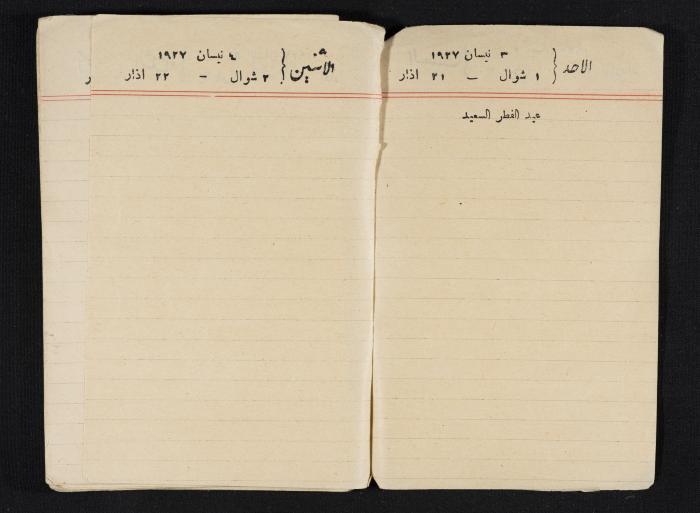 الاحد
٣ نيسان ١٩٢٧
١ شوال – ٢١ اذار
عيد الفطر السعيد
الاثنين
٤ نيسان ١٩٢٧
٢ شوال – ٢٢ اذار
ر